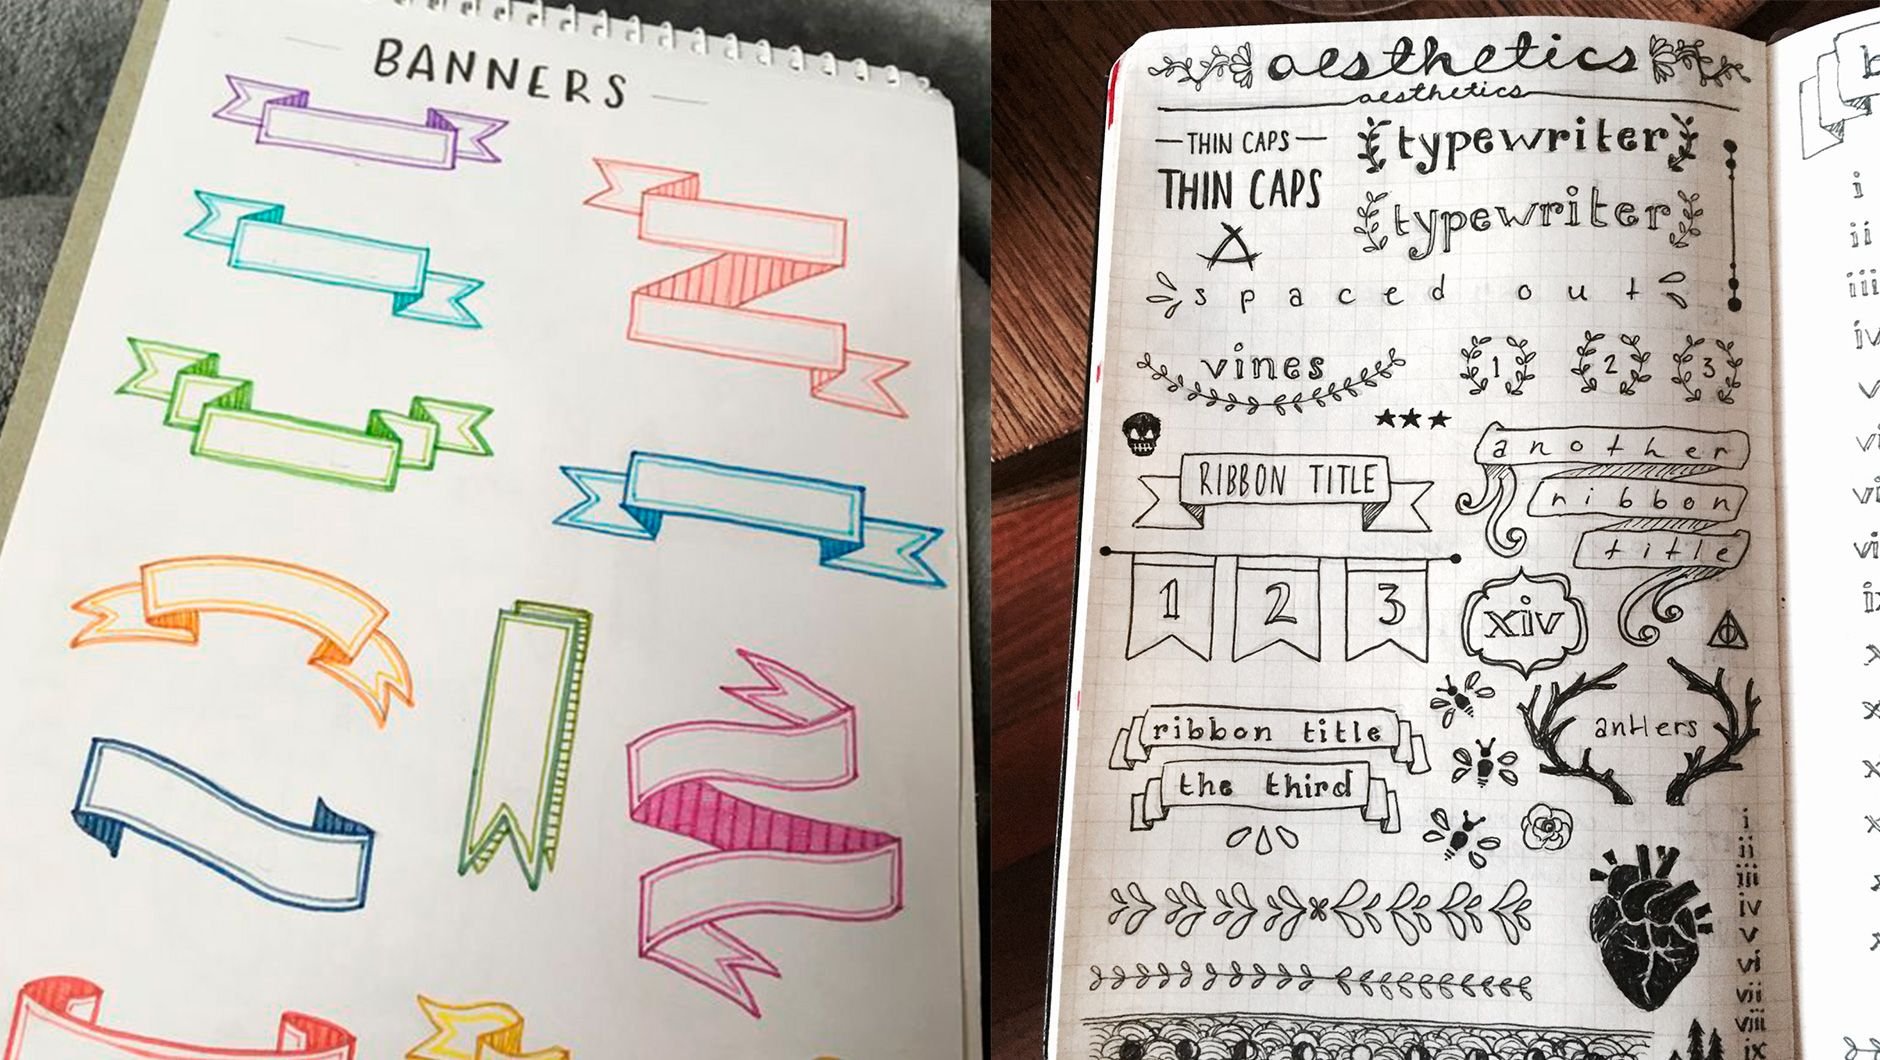 BANNERS
aesthetics
aesthetics
THIN CAPS
typewriter
THIN CAPS
typewriter
A
spaced out
vines
1 2 3
another
RIBBON TITLE
ribbon
title
1 2 3
xiv
antlers
ribbon title
the third
i
ii
iii
iv
v
vi
vii
viii
ix
i
ii
iii
iv
v
vi